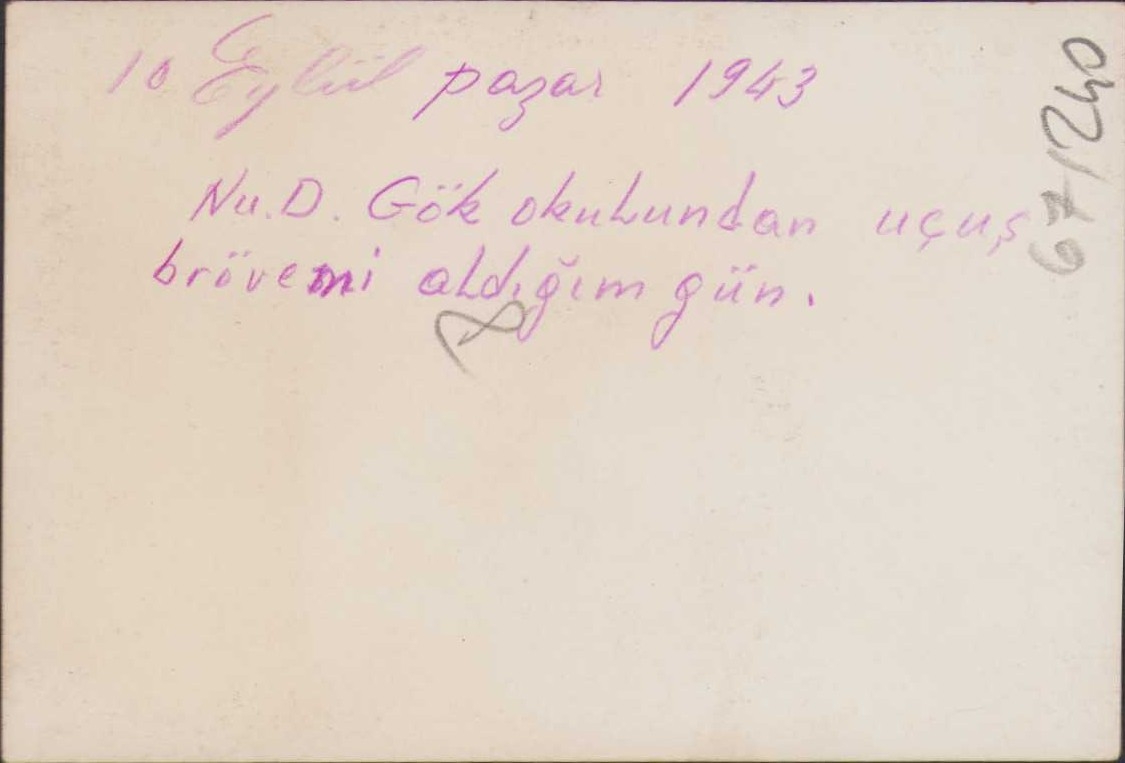 10 Eylül pazar 1943
Nu.D. Gök okulundan uçuş
brövemi aldığım gün.
67/240